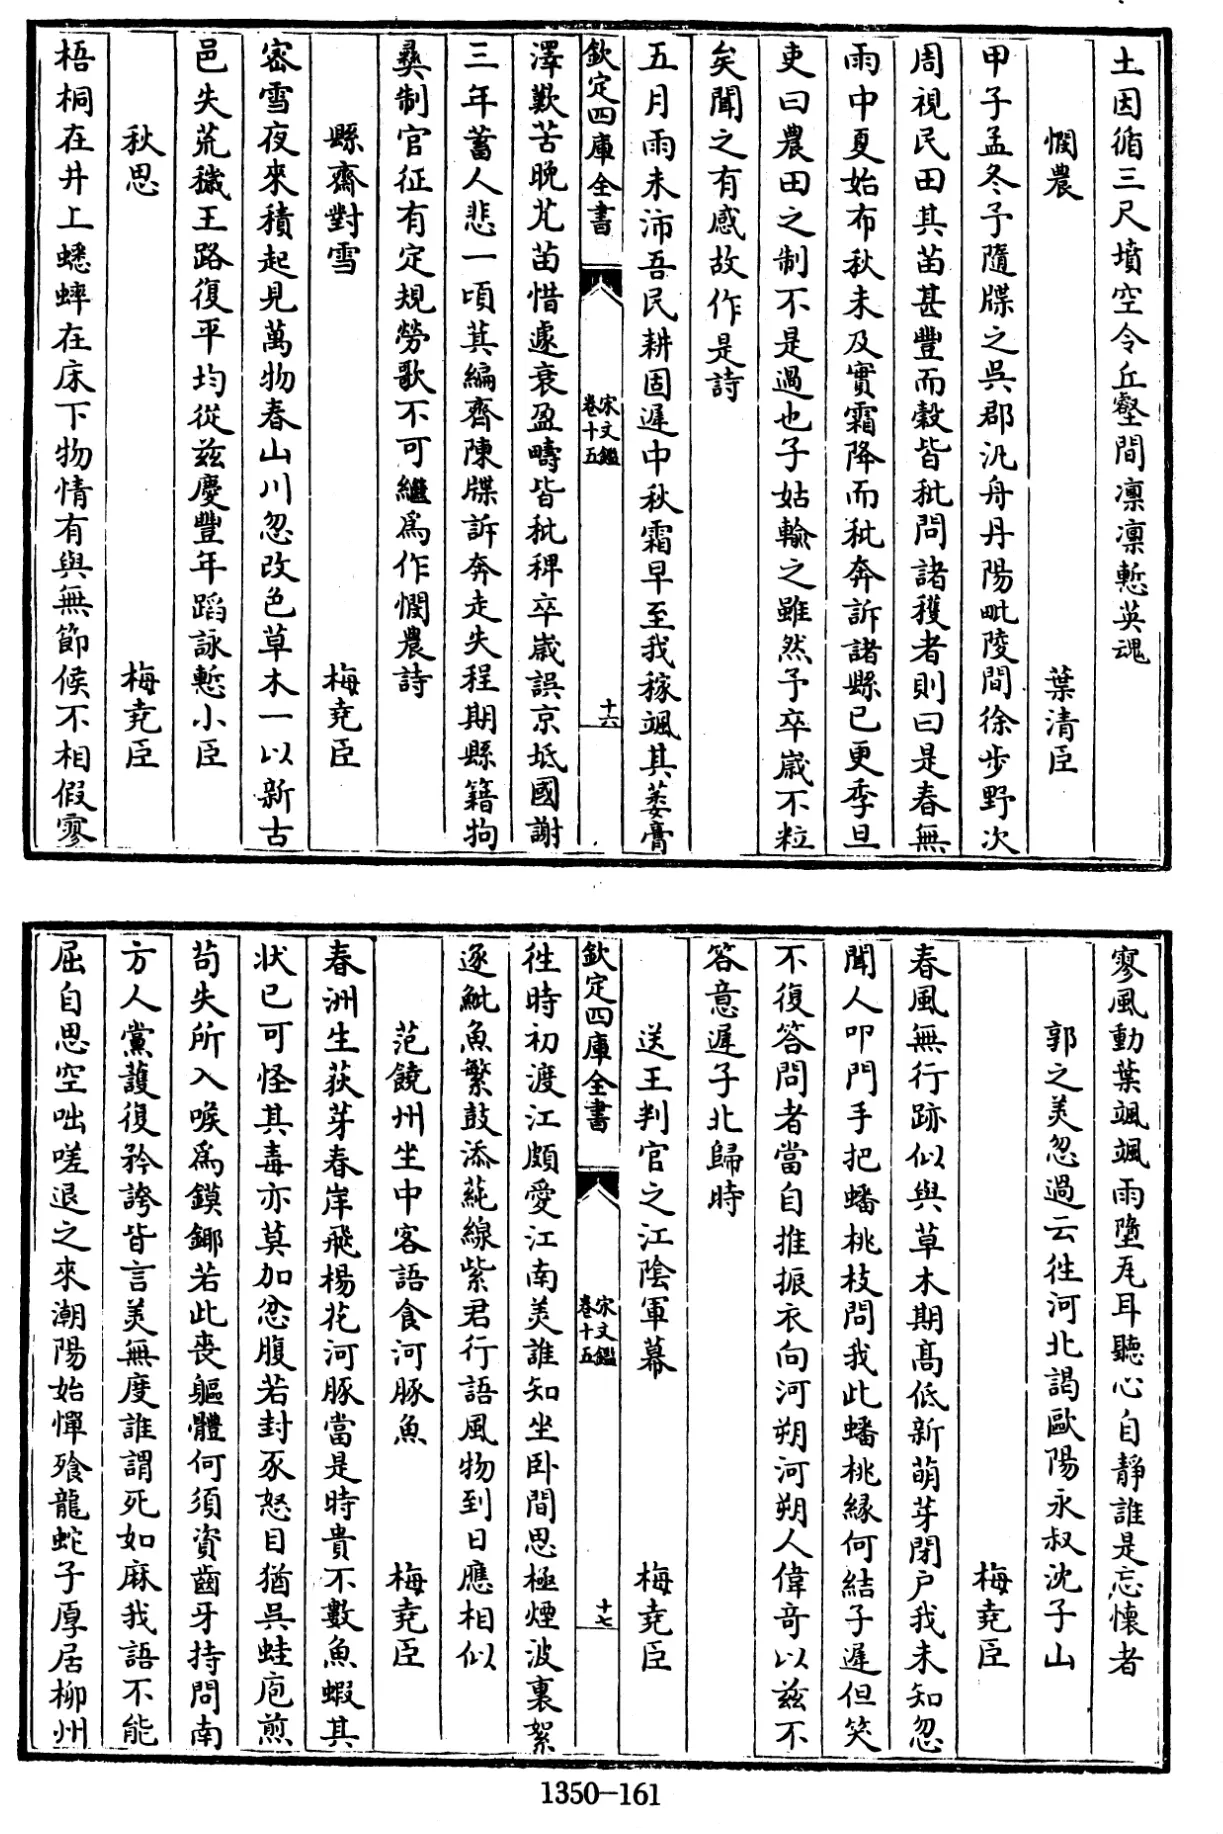 土因循三尺墳空令丘壑間凛凛慙英魂
憫農 葉清臣
甲子孟冬予隨牒之吳郡汎舟丹陽毗陵間徐步野次
周視民田其苗甚豐而穀皆秕問諸穫者則曰是春無
雨中夏始布秋未及實霜降而秕奔訴諸縣已更季旦
吏曰農田之制不是過也子姑輸之雖然予卒嵗不粒
矣聞之有感故作是詩
五月雨未沛吾民耕固遲中秋霜早至我稼颯其萎膏
欽定四庫全書 宋文鑑 卷十五 十六
澤歎苦晚芃苗惜遽衰盈疇皆秕稗卒嵗誤京坻國謝
三年蓄人悲一頃萁編齊陳牒訴奔走失程期縣籍拘
彛制官征有定規勞歌不可繼爲作憫農詩
縣齋對雪 梅堯臣
密雪夜來積起見萬物春山川忽改色草木一以新古
邑失荒穢王路復平均從兹慶豐年蹈詠慙小臣
秋思 梅堯臣
梧桐在井上蟋蟀在床下物情有與無節候不相假寥
寥風動葉颯颯雨墮瓦耳聽心自靜誰是忘懷者
郭之美忽過云徃河北謁歐陽永叔沈子山
梅堯臣
春風無行跡似與草木期髙低新萌芽閉戸我未知忽
聞人叩門手把蟠桃枝問我此蟠桃縁何結子遲但笑
不復答問者當自推振衣向河朔河朔人偉竒以兹不
答意遲子北歸時
送王判官之江陰軍幕 梅堯臣
欽定四庫全書 宋文鑑 卷十五 十七
徃時初渡江頗愛江南美誰知坐卧間思極煙波裏絮
逐魮魚繁鼓添蒓線紫君行語風物到日應相似
范饒州坐中客語食河豚魚 梅堯臣
春洲生荻芽春岸飛楊花河豚當是時貴不數魚蝦其
狀已可怪其毒亦莫加忿腹若封豕怒目猶吳蛙庖煎
苟失所入喉爲鏌鎁若此喪軀體何須資齒牙持問南
方人黨護復矜誇皆言美無度誰謂死如麻我語不能
屈自思空咄嗟退之來潮陽始憚飱龍蛇子厚居柳州
1350—161